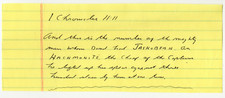 1 Chronicles 11:11
And this is the number of the mighty
men whom David had Jashobeam, an
Hachmonite, the chief of the captains
he lift up his spear against three
hundred slain by him at one time